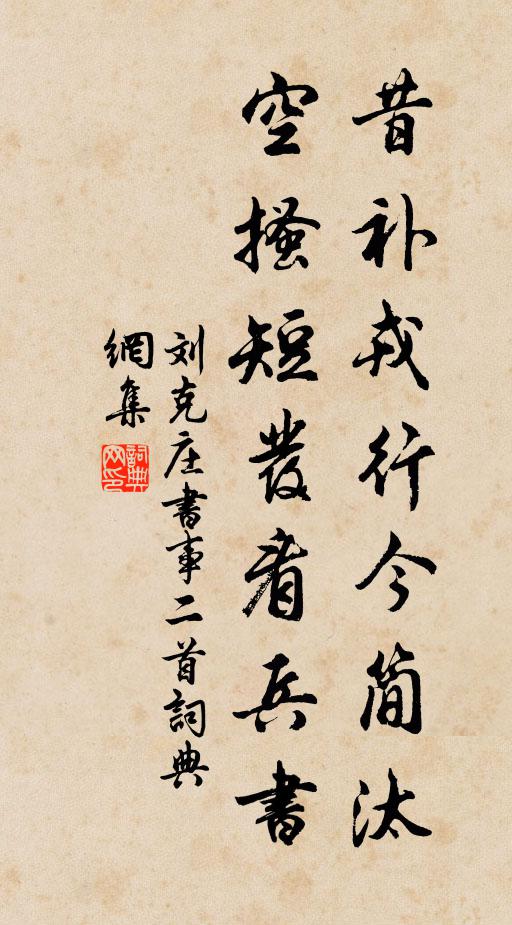 昔补戎行今简汰
空搔短發看兵書
刘克庄書事二首詞典
網集
詞典網印